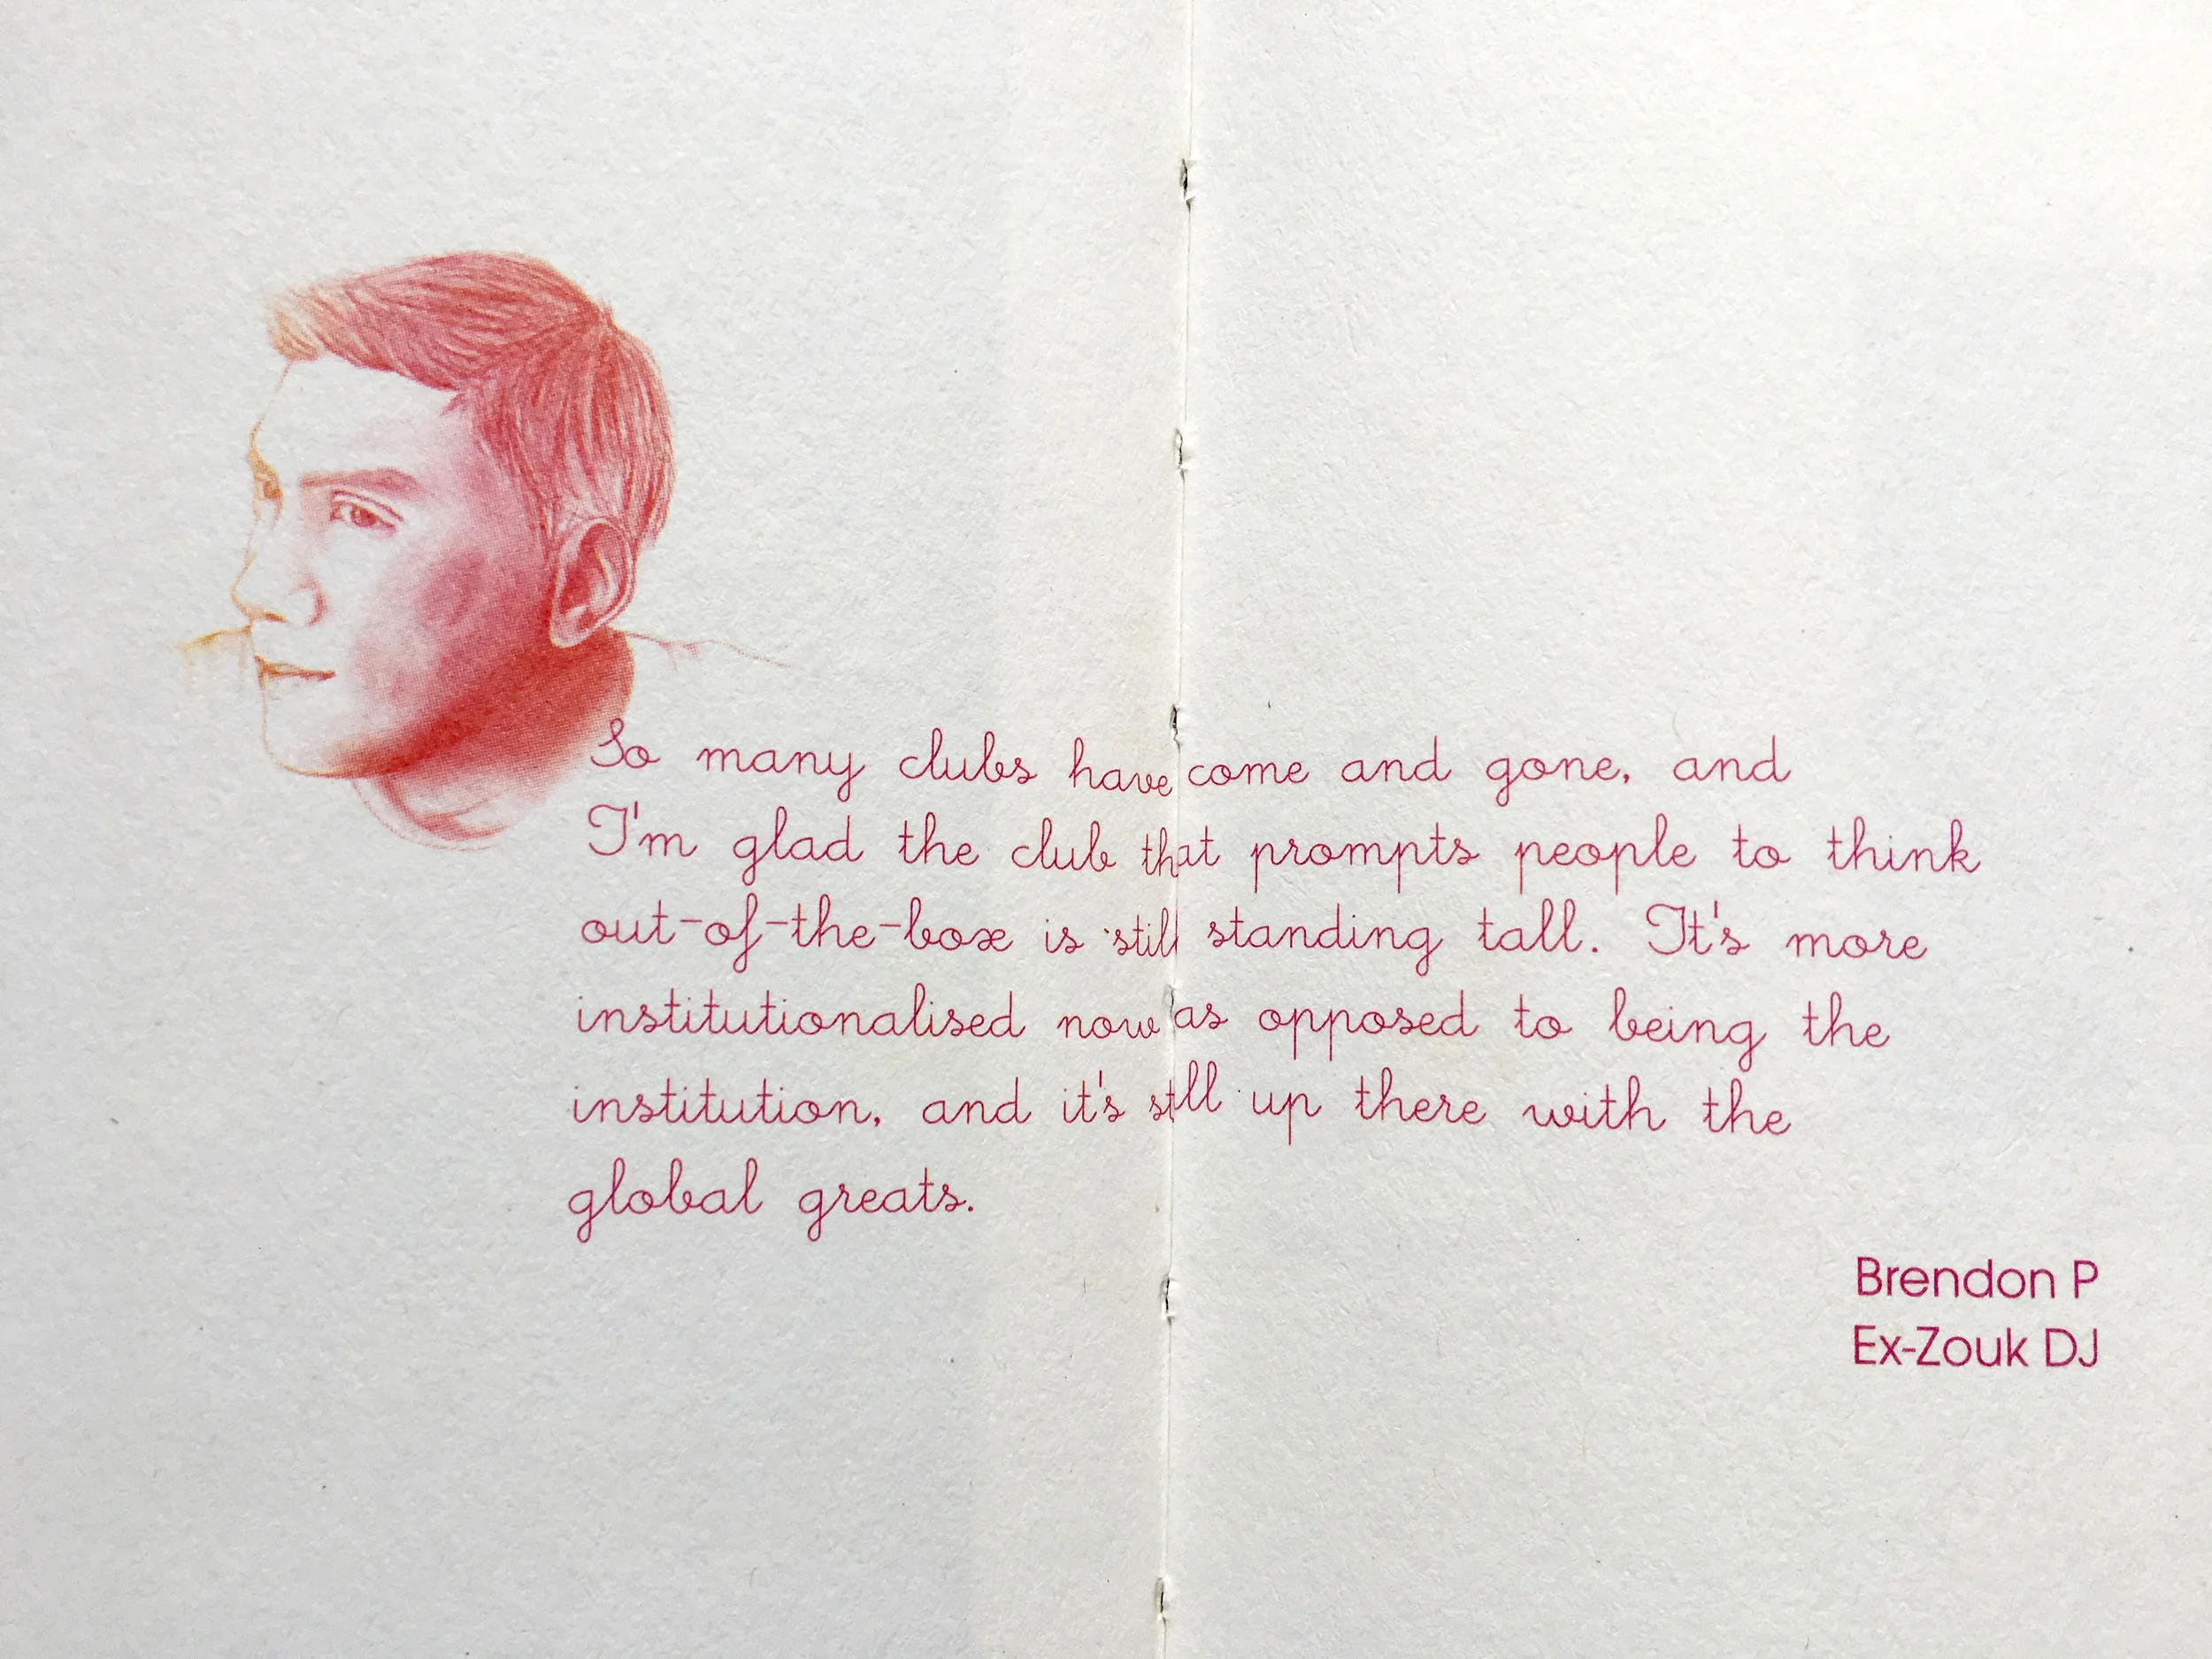 So many clubs have come and gone, and
I'm glad the club that prompts people to think
out-of-the-box is still standing tall. It's more
institutionalised now as opposed to being the
institution, and it's still up there with the
global greats.
Brendon P
Ex-Zouk DJ